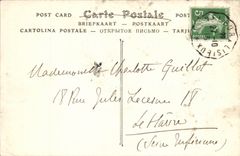 POST CARD Carte Postale POST
BRIEFKAART - POSTKAART
CARTOLINA POSTALE - ОТКРЫТОЕ ПИСЬМО - TARJ
5
LISIEUX
Mademoiselle Charlotte Guillot
18 Rue Jules Lecesne 18
Le Hâvre
(Seine Inférieure)